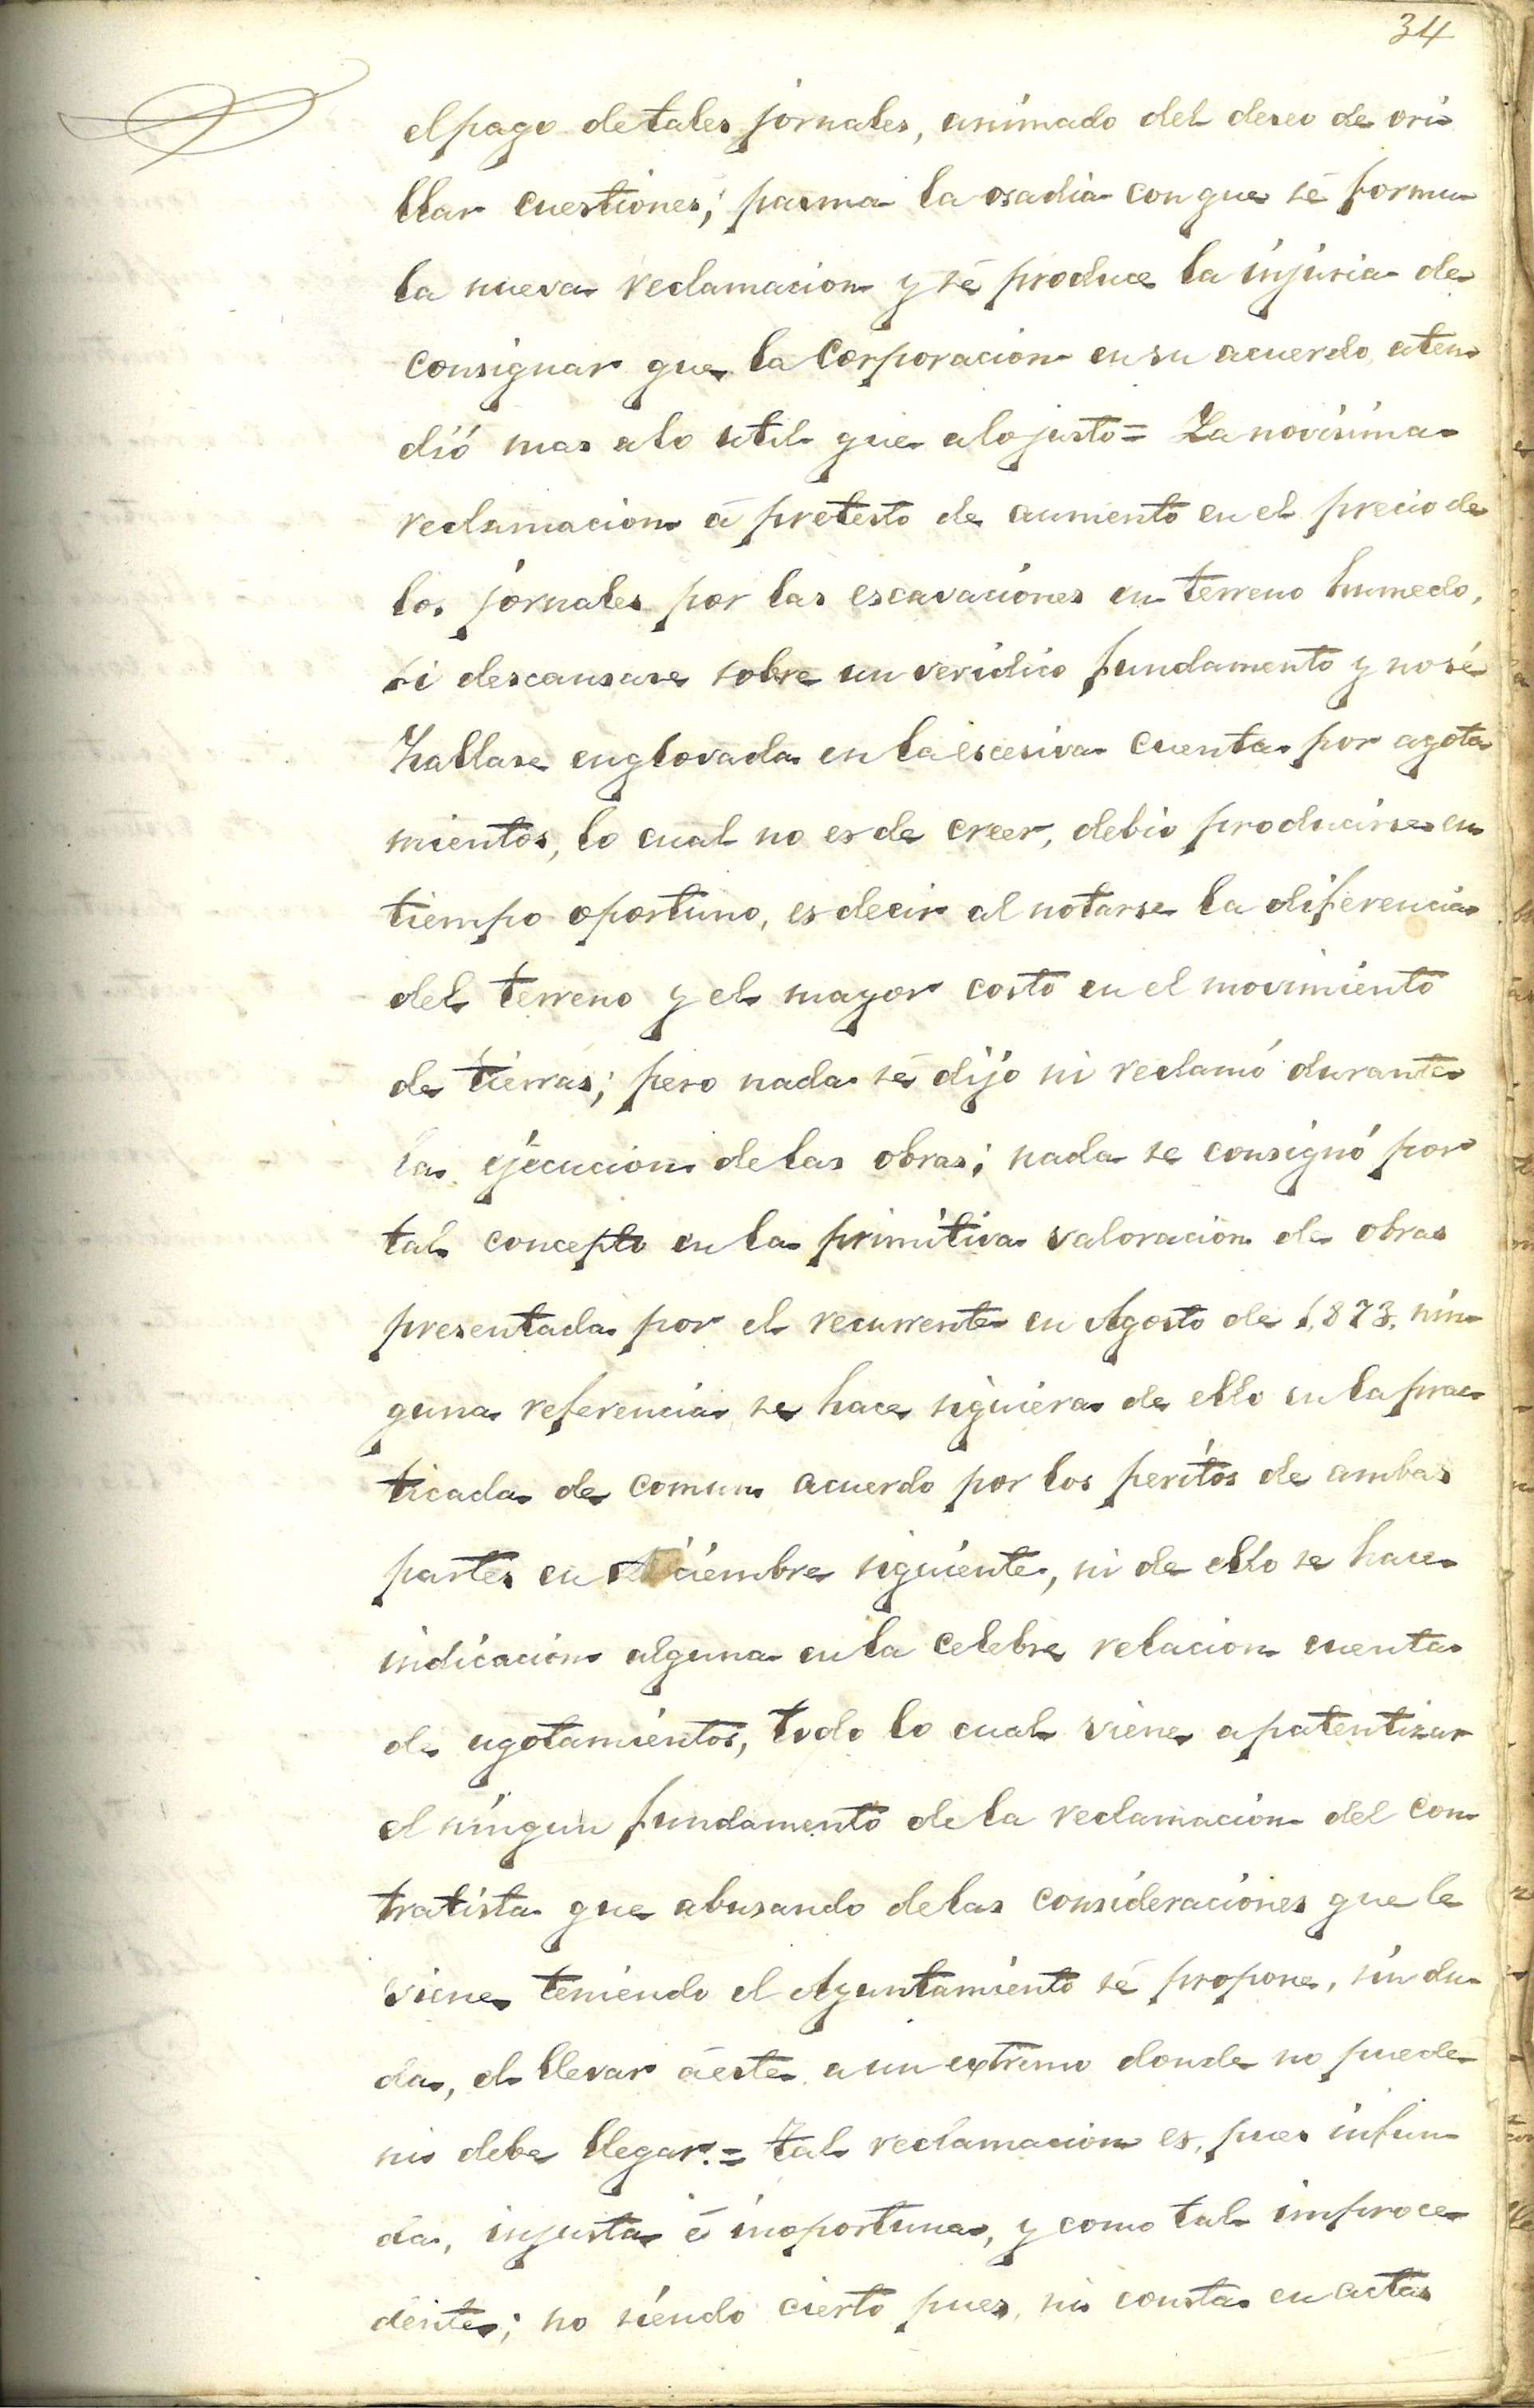 34
el pago de tales jornales, animado del deseo de ori
llar cuestiones; pasma la osadia con que sé formu
la nueva reclamacion y sé produce la injuria de
consignar que la Corporacion en su acuerdo aten
dió mas a lo util que a lo justo = La novisima
reclamacion á pretesto de aumento en el precio de
los jornales por las escavaciones en terreno humedo,
si descansare sobre un veridico fundamento y no sé
hallase englovada en la escesiva cuenta por agota
mientos, lo cual no es de creer, debio producirse en
tiempo oportuno, es decir al notarse la diferencia
del terreno y el mayor costo en el movimiento
de tierras; pero nada sé dijo ni reclamó durante
la ejecucion de las obras; nada se consignó por
tal concepto en la primitiva valoracion de obras
presentada por el recurrente en Agosto de 1,873, nin
guna referencia se hace siguiera de ello en la prac
ticada de comun acuerdo por los peritos de ambas
partes en siguiente, ni de ello se hace
indicacion alguna en la celebre relacion cuenta
de agotamientos, todo lo cual viene a patentizar
el ningun fundamento de la reclamacion del con
tratista que abusando de las consideraciones que le
viene teniendo el Ayuntamiento sé propone, sin du
da, el llevar á este a un extremo donde no puede
ni debe llegar. = tal reclamacion es, pues infun
da, injusta é inoportuna, y como tal improce
dente; no siendo cierto pues, ni consta en actas